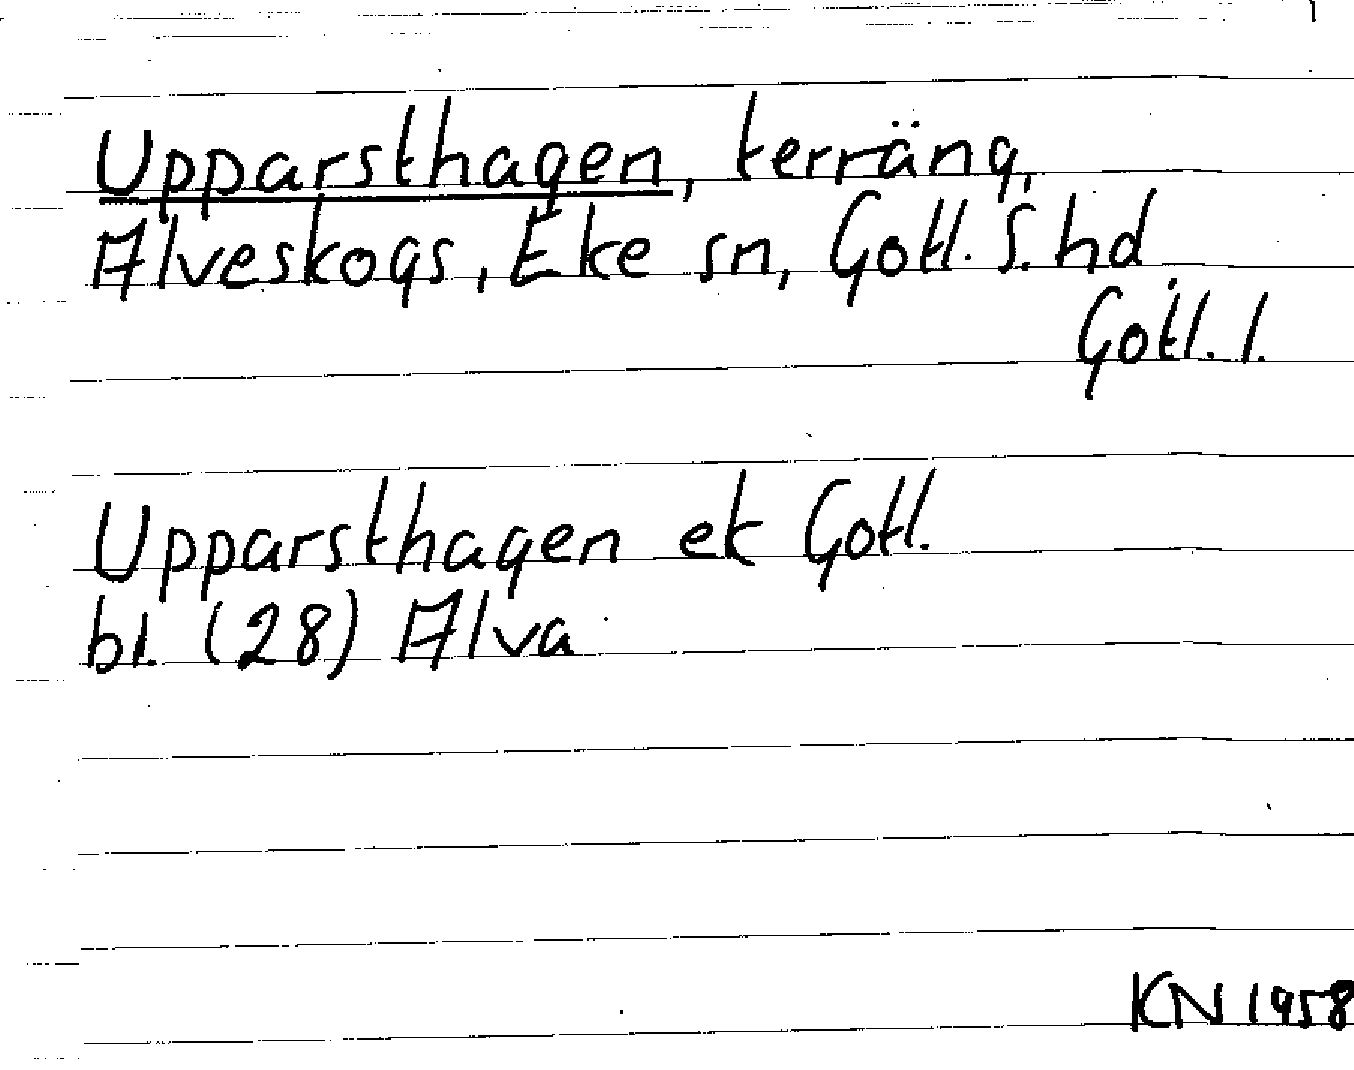 Upparsthagen, terräng,
Alveskogs, Eke sn, Gotl. S. hd
Gotl. l.
Upparsthagen ek Gotl.
bl. (28) Alva
KN 1958